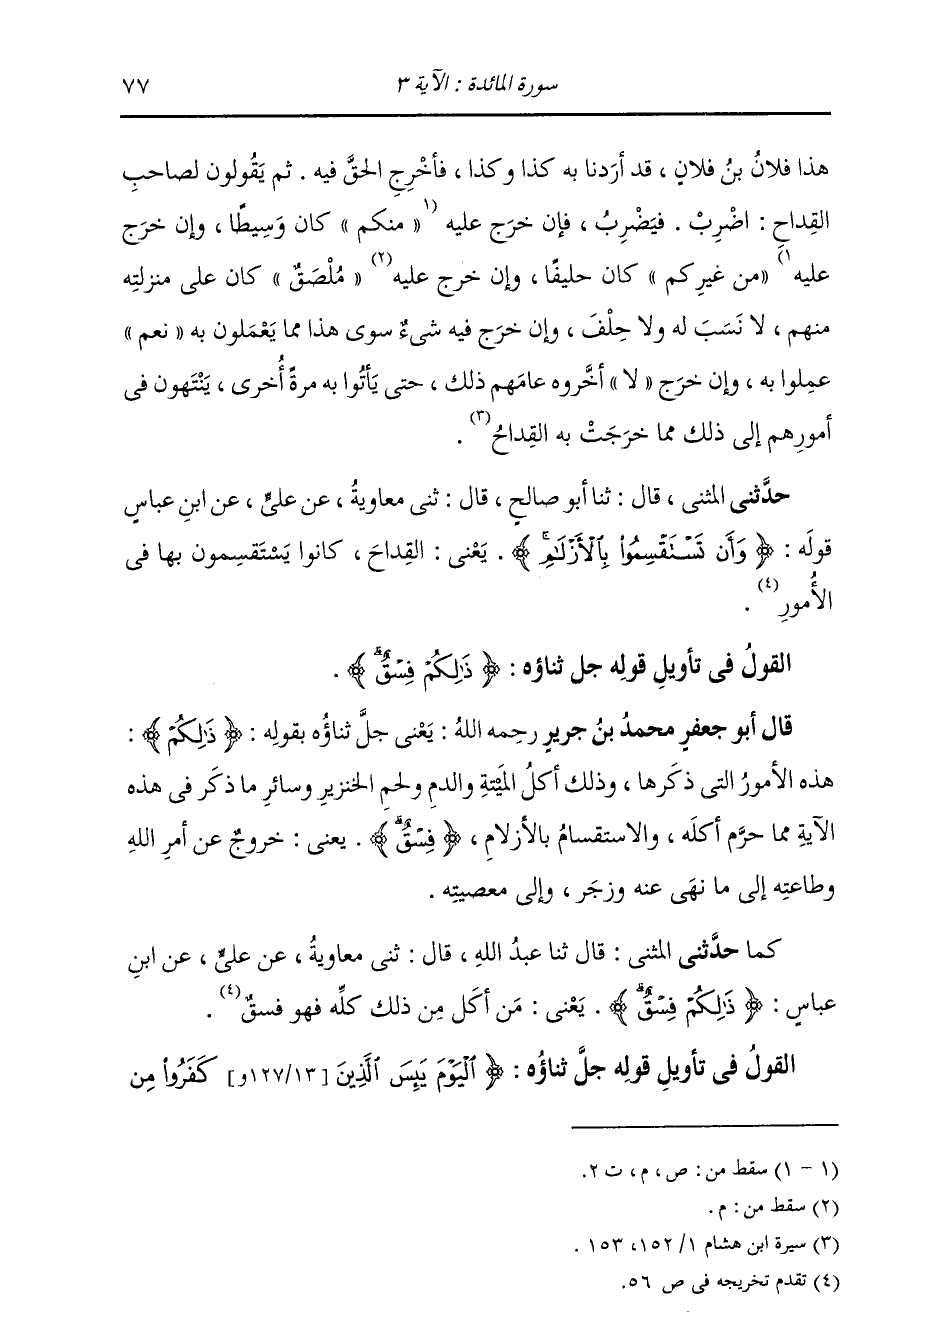 سورة المائدة : الآية ٣ ٧٧
هذا فلانُ بنُ فلانٍ ، قد أرَدنا به كذا وكذا ، فأخْرِجِ الحقَّ فيه . ثم يَقُولون لصاحبِ
القِداحِ : اضْرِبْ . فيَضْرِبُ ، فإن خرَج عليه (١« منكم » كان وَسِيطًا ، وإن خرَج
عليه١) «من غيرِكم » كان حليفًا ، وإن خرج عليه(٢) « مُلْصَقٌ » كان على منزلتِه
منهم ، لا نَسَبَ له ولا حِلْفَ ، وإن خرَج فيه شىءٌ سوى هذا مما يَعْمَلون به « نعم »
عمِلوا به ، وإن خرَج « لا » أخَّروه عامَهم ذلك ، حتى يَأتُوا به مرةً أُخرى ، يَنْتَهون فى
أمورِهم إلى ذلك مما خرَجَتْ به القِداحُ(٣) .
حدَّثنى المثنى ، قال : ثنا أبو صالحٍ ، قال : ثنى معاويةُ ، عن علىٍّ ، عن ابنِ عباسٍ
قولَه : ﴿ وَأَن تَسْتَقْسِمُواْ بِٱلْأَزْلَٰمِۚ ﴾ . يَعْنى : القِداحَ ، كانوا يَسْتَقسِمون بها فى
الأُمورِ(٤) .
القولُ فى تأويلِ قولِه جل ثناؤه : ﴿ ذَٰلِكُمْ فِسْقٌۗ ﴾ .
قال أبو جعفرٍ محمدُ بنُ جريرٍ رحِمه اللهُ : يَعْنى جلَّ ثناؤُه بقولِه : ﴿ ذَٰلِكُمْ ﴾ :
هذه الأمورُ التى ذكَرها ، وذلك أكلُ المَيْتةِ والدمِ ولحمِ الخنزيرِ وسائرِ ما ذكَر فى هذه
الآيةِ مما حرَّم أكلَه ، والاستقسامُ بالأزلامِ ، ﴿ فِسْقٌۗ ﴾ . يعنى : خروجٌ عن أمرِ اللهِ
وطاعتِه إلى ما نهَى عنه وزجَر ، وإلى معصيتِه .
كما حدَّثنى المثنى : قال ثنا عبدُ اللهِ ، قال : ثنى معاويةُ ، عن علىٍّ ، عن ابنِ
عباسٍ : ﴿ ذَٰلِكُمْ فِسْقٌۗ ﴾ . يَعْنى : مَن أكَل مِن ذلك كلِّه فهو فسقٌ(٤) .
القولُ فى تأويلِ قولِه جلَّ ثناؤُه : ﴿ ٱلْيَوْمَ يَئِسَ ٱلَّذِينَ [١٢٧/١٣و] كَفَرُواْ مِن
(١ - ١) سقط من : ص ، م ، ت ٢.
(٢) سقط من : م .
(٣) سيرة ابن هشام ١/ ١٥٢، ١٥٣ .
(٤) تقدم تخريجه فى ص ٥٦.